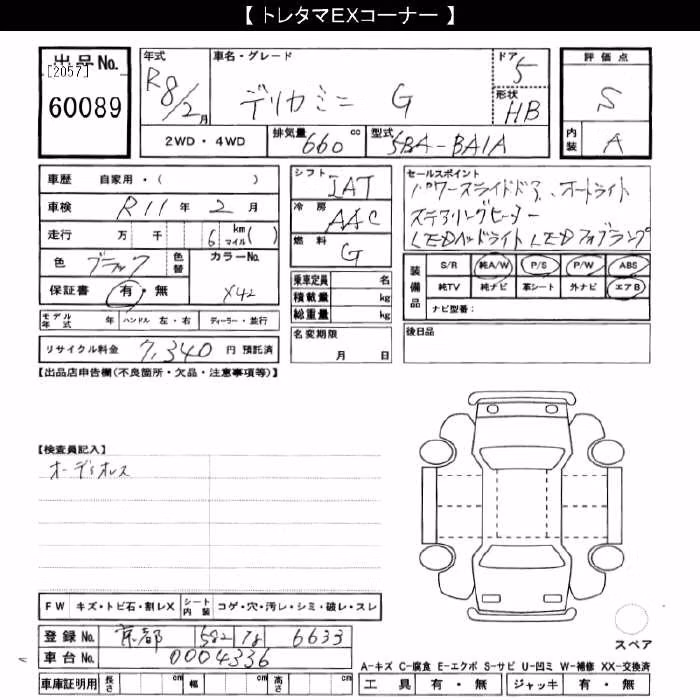 【 トレタマEXコーナー 】
出品No.
[2057]
60089
年式
R8/2月
車名・グレード
デリカミニ G
ドア
5
形状
HB
評価点
S
内装
A
2WD・4WD
排気量
660 cc
型式
5BA-BA1A
車歴 自家用・( )
車検 R11年 2月
走行 万 千 6 km マイル( )
色 ブラック
色替
カラーNo.
X42
保証書 有・無
モデル年式 年 ハンドル 左・右 ディーラー・並行
リサイクル料金 7,340 円 預託済
シフト
IAT
冷房
AAC
燃料
G
乗車定員 名
積載量 kg
総重量 kg
名変期限
月 日
セールスポイント
パワースライドドア、オートライト
ステアリングヒーター
LEDヘッドライト LEDフォグランプ
装備品
S/R 純A/W P/S P/W ABS
純TV 純ナビ 革シート 外ナビ エアB
ナビ型番：
後日品
【出品店申告欄(不良箇所・欠品・注意事項等)】
【検査員記入】
オーディオレス
FW キズ・トビ石・割レX
シート内装 コゲ・穴・汚レ・シミ・破レ・スレ
登録No. 京都 582 る 6633
車台No. 0004336
車庫証明用 長さ cm 幅 cm 高さ cm
スペア
A-キズ C-腐食 E-エクボ S-サビ U-凹ミ W-補修 XX-交換済
工具 有・無 ジャッキ 有・無